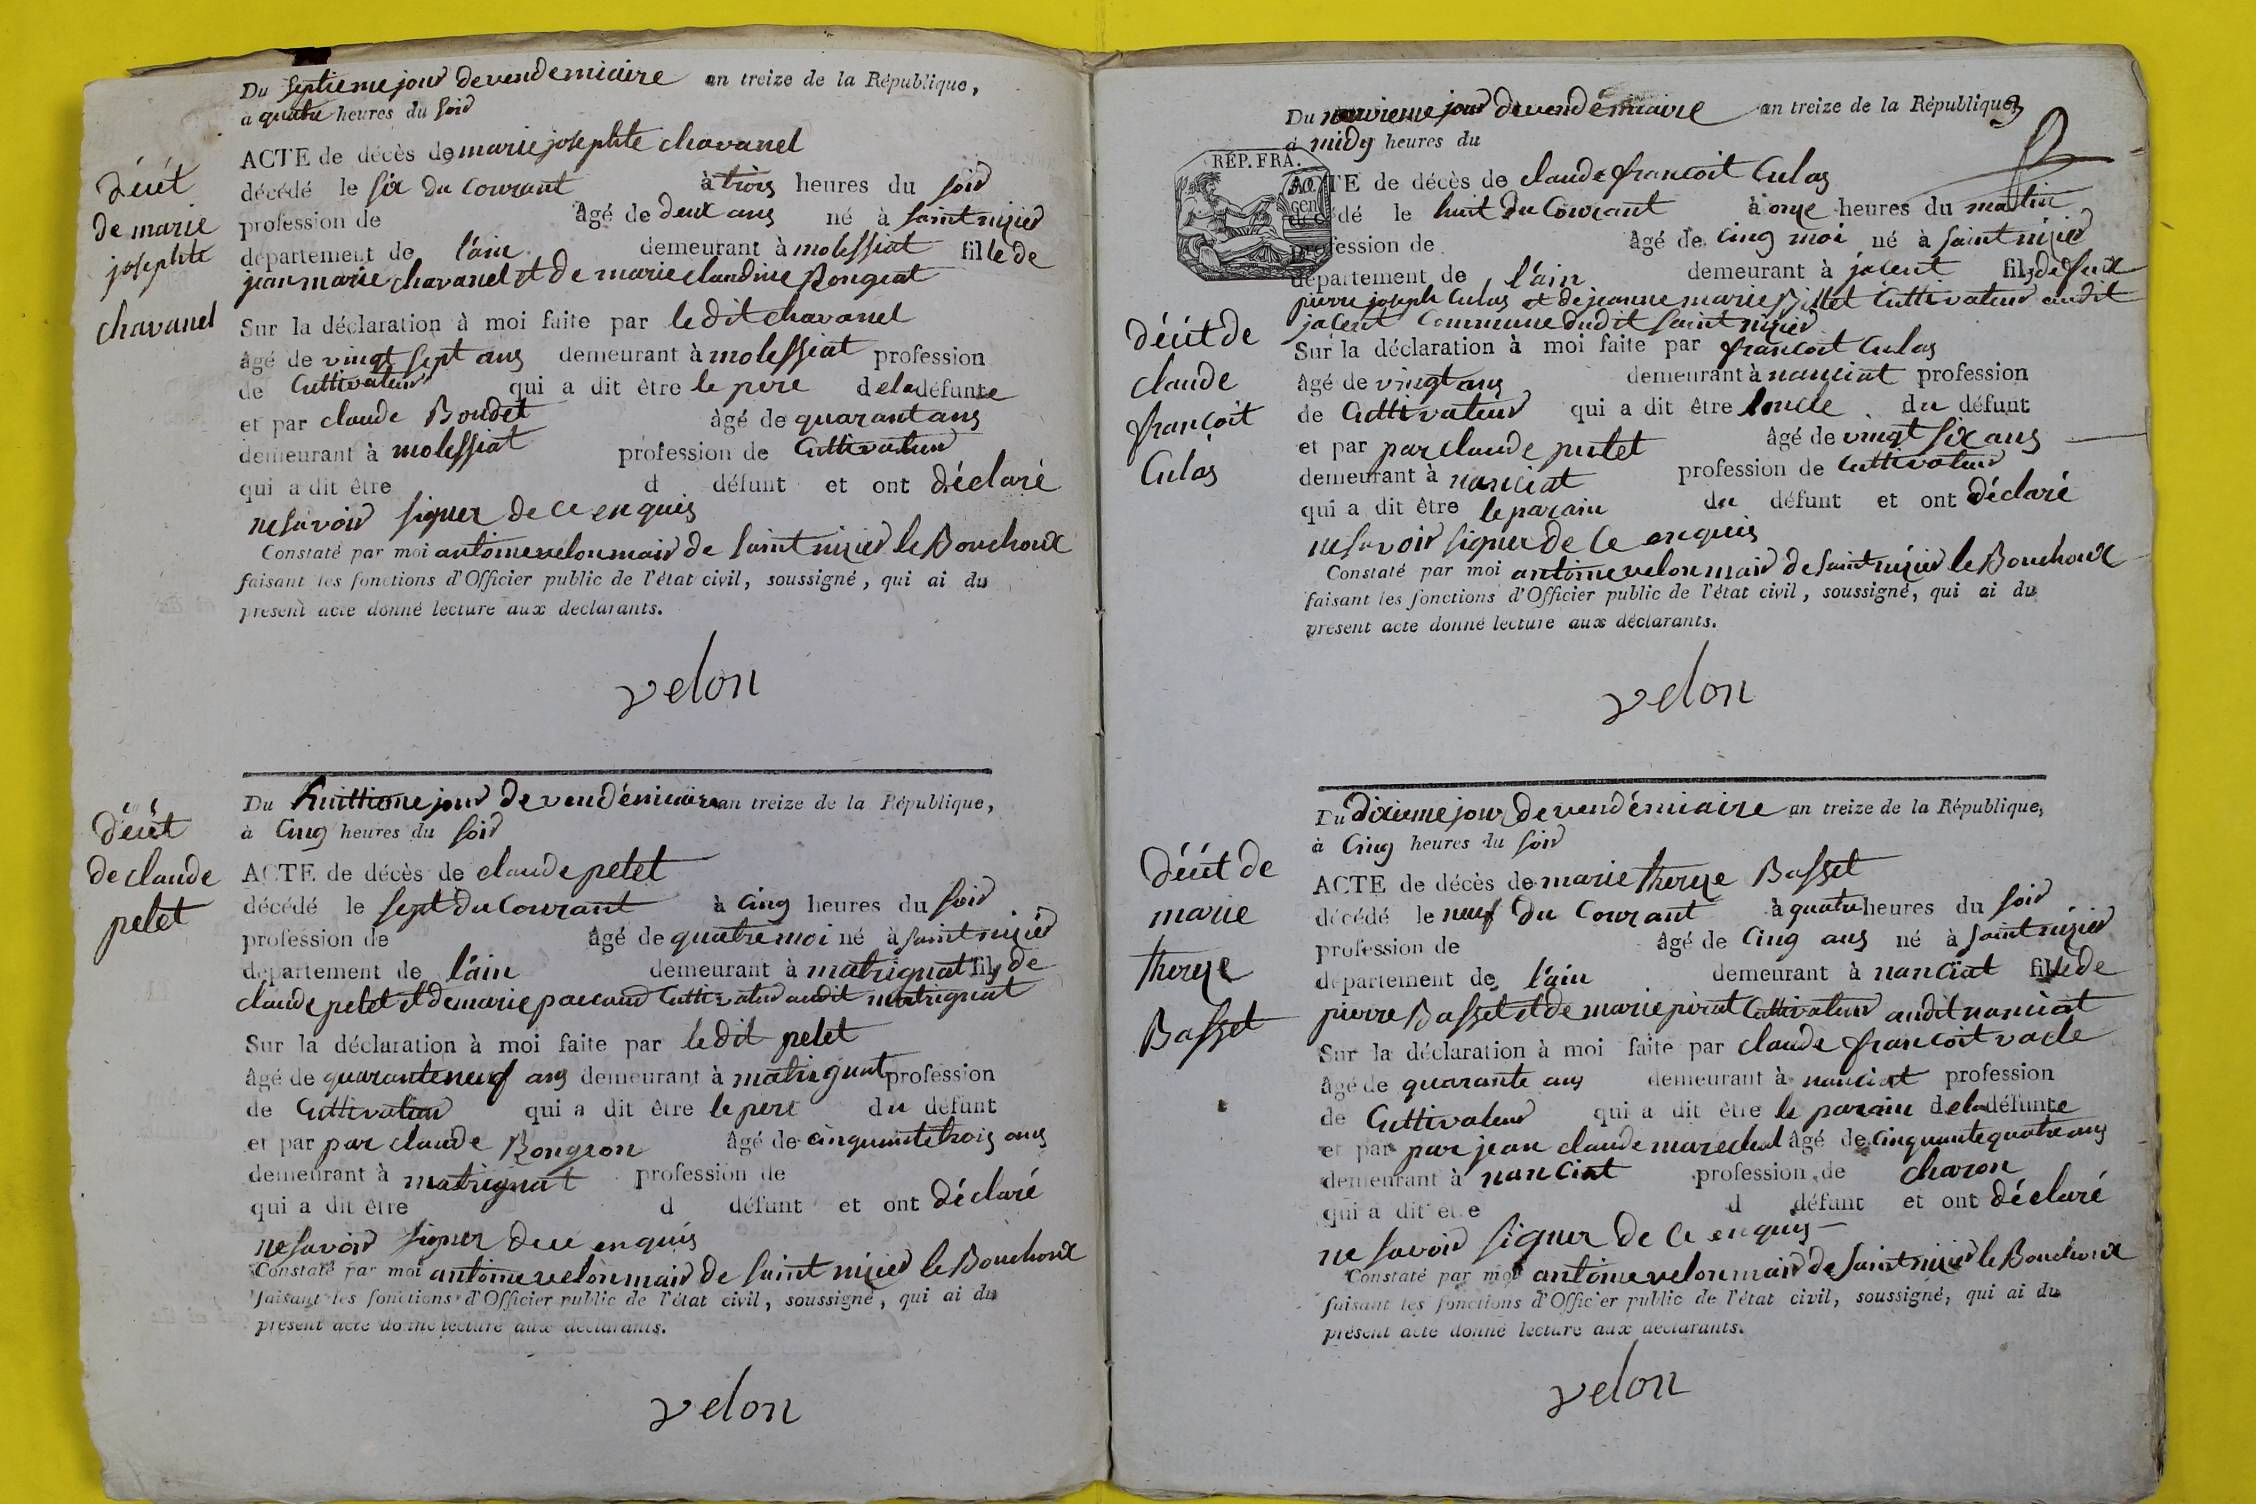 Du septieme jour de vendemiaire an treize de la République,
à quatre heures du soir
décét
de marie
josephte
chavanel
ACTE de décès de marie josephte chavanel
décédé le six du Courant à trois heures du soir
profession de âgé de deux ans né à saint nizier
département de l'ain demeurant à molessiat fille de
jean marie chavanel et de marie claudine Rongeat
Sur la déclaration à moi faite par le dit chavanel
âgé de vingt sept ans demeurant à molessiat profession
de Cultivateur qui a dit être le pere de la défunte
et par claude Boudet âgé de quarant ans
demeurant à molessiat profession de Cultivateur
qui a dit être d défunt et ont déclaré
ne savoir signer de ce enquis
Constaté par moi antoine velon mair de saint nizier le Bouchoux
faisant les fonctions d'Officier public de l'état civil, soussigné, qui ai du
présent acte donné lecture aux déclarants.
velon
décét
de claude
pelet
Du huittieme jour de vendémiaire an treize de la République,
à Cinq heures du soir
ACTE de décès de claude petet
décédé le sept du Courant à Cinq heures du soir
profession de âgé de quatre moi né à saint nizier
département de l'ain demeurant à matrignat fils de
claude petet et de marie paccaud Cultivateur audit matrignat
Sur la déclaration à moi faite par le dit petet
âgé de quarante neuf ans demeurant à matrignat profession
de Cultivateur qui a dit être le pere du défunt
et par par claude Rongeon âgé de cinquante trois ans
demeurant à matrignat profession de
qui a dit être d défunt et ont déclaré
ne savoir signer de ce enquis
Constaté par moi antoine velon mair de saint nizier le Bouchoux
faisant les fonctions d'Officier public de l'état civil, soussigné, qui ai du
présent acte donné lecture aux déclarants.
velon
Du neuvieme jour de vendémiaire an treize de la République,
à midy heures du
RÉP. FRA.
ACTE de décès de claude francoit Culas
décédé le huit du Courant à onze heures du mattin
profession de âgé de Cinq moi né à saint nizier
département de l'ain demeurant à jacent fils de feux
pierre joseph Culas et de jeanne marie Billet Cultivateur audit
jacent Commune dudit saint nizier
décét de
claude
françoit
Culas
Sur la déclaration à moi faite par francoit Culas
âgé de vingt ans demeurant à nanciat profession
de Cultivateur qui a dit être loncle du défunt
et par par claude putet âgé de vingt six ans
demeurant à nanciat profession de Cultivateur
qui a dit être le parain du défunt et ont déclaré
ne savoir signer de ce enquis
Constaté par moi antoine velon mair de saint nizier le Bouchoux
faisant les fonctions d'Officier public de l'état civil, soussigné, qui ai du
présent acte donné lecture aux déclarants.
velon
Du dixieme jour de vendémiaire an treize de la République,
à Cinq heures du soir
décét de
marie
thereze
Basset
ACTE de décès de marie thereze Basset
décédé le neuf du Courant à quatre heures du soir
profession de âgé de Cinq ans né à saint nizier
département de l'ain demeurant à nanciat fille de
pierre Basset et de marie pirat Cultivateur audit nanciat
Sur la déclaration à moi faite par claude francoit vacle
âgé de quarante ans demeurant à nanciat profession
de Cultivateur qui a dit être le parain de la défunte
et par par jean claude marechal âgé de Cinquante quatre ans
demeurant à nanciat profession de charon
qui a dit être d défunt et ont déclaré
ne savoir signer de ce enquis
Constaté par moi antoine velon mair de saint nizier le Bouchoux
faisant les fonctions d'Officier public de l'état civil, soussigné, qui ai du
présent acte donné lecture aux déclarants.
velon